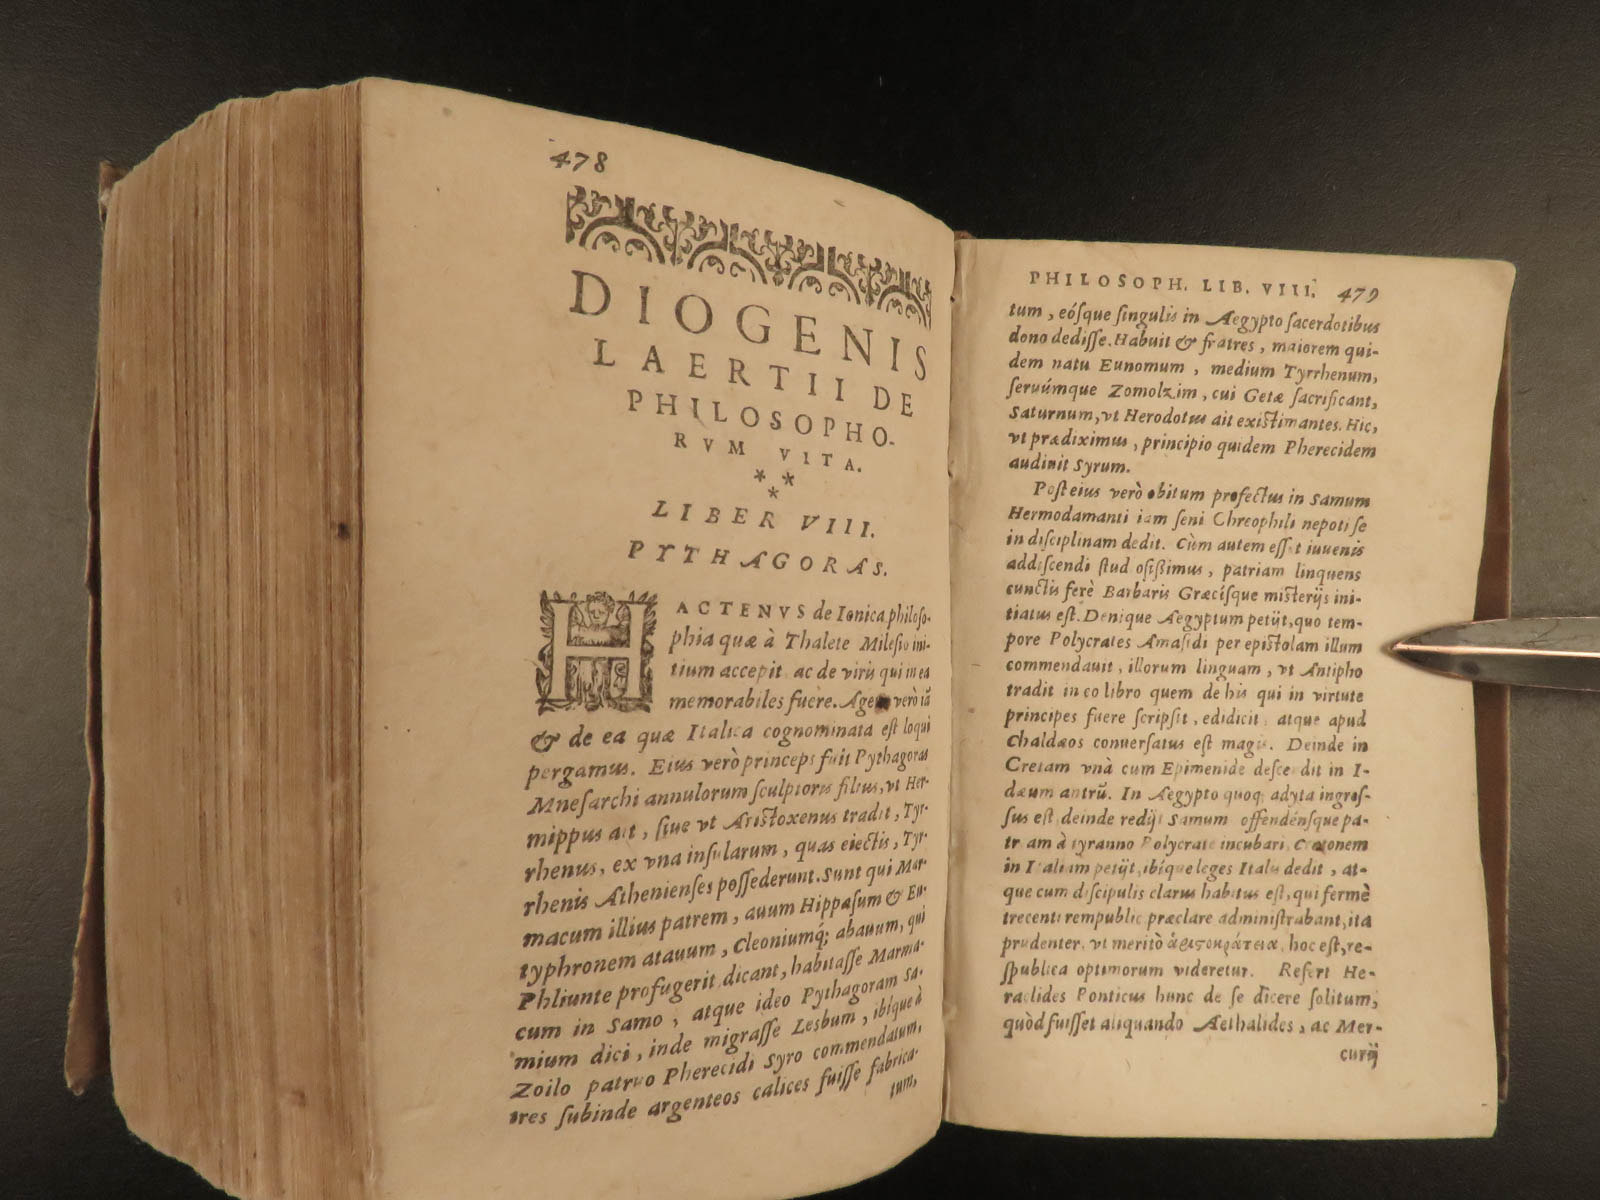 478
DIOGENIS
LAERTII DE
PHILOSOPHO-
RVM VITA.
***
LIBER VIII.
PYTHAGORAS.
HACTENVS de Ionica philoso-
phia quæ à Thalete Milesio ini-
tium accepit ac de viris qui in ea
memorabiles fuêre. Age verò iã
& de ea quæ Italica cognominata est loqui
pergamus. Eius verò princeps fuit Pythagoras
Mnesarchi annulorum sculptoris filius, vt Her-
mippus ait, siue vt Aristoxenus tradit, Tyr-
rhenus, ex vna insularum, quas eiectis, Tyr-
rhenis Athenienses possederunt. Sunt qui Mar-
macum illius patrem, auum Hippasum & Eu-
typhronem atauum, Cleoniumq; abauum, qui
Phliunte profugerit dicant, habitasse Marma-
cum in Samo, atque ideo Pythagoram Sa-
mium dici, inde migrasse Lesbum, ibíque à
Zoilo patruo Pherecidi Syro commendatum,
tres subinde argenteos calices fuisse fabrica-
tum,
PHILOSOPH. LIB. VIII. 479
tum, eósque singulis in Aegypto sacerdotibus
dono dedisse. Habuit & fratres, maiorem qui-
dem natu Eunomum, medium Tyrrhenum,
seruúmque Zomolxim, cui Getæ sacrificant,
Saturnum, vt Herodotus ait existimantes. Hic,
vt prædiximus, principio quidem Pherecidem
audiuit Syrum.
Post eius verò obitum profectus in Samum
Hermodamanti iam seni Chreophili nepoti se
in disciplinam dedit. Cùm autem esset iuuenis
addiscendi studiosissimus, patriam linquens
cunctis ferè Barbaris Græcísque misterijs ini-
tiatus est. Denique Aegyptum petijt, quo tem-
pore Polycrates Amasidi per epistolam illum
commendauit, illorum linguam, vt Antipho
tradit in eo libro quem de his qui in virtute
principes fuere scripsit, edidicit, atque apud
Chaldæos conuersatus est magis. Deinde in
Cretam vnà cum Epimenide descendit in I-
dæum antrũ. In Aegypto quoq; adyta ingres-
sus est, deinde redijt Samum offendénsque pa-
triam à tyranno Polycrate incubari, Crotonem
in Italiam petijt, ibíque leges Italis dedit, at-
que cum discipulis clarus habitus est, qui fermè
trecenti rempublic præclare administrabant, ita
prudenter, vt meritò ἀριστοκράτεια, hoc est, re-
spublica optimorum videretur. Refert He-
raclides Ponticus hunc de se dicere solitum,
quòd fuisset aliquando Aethalides, ac Mer-
curij